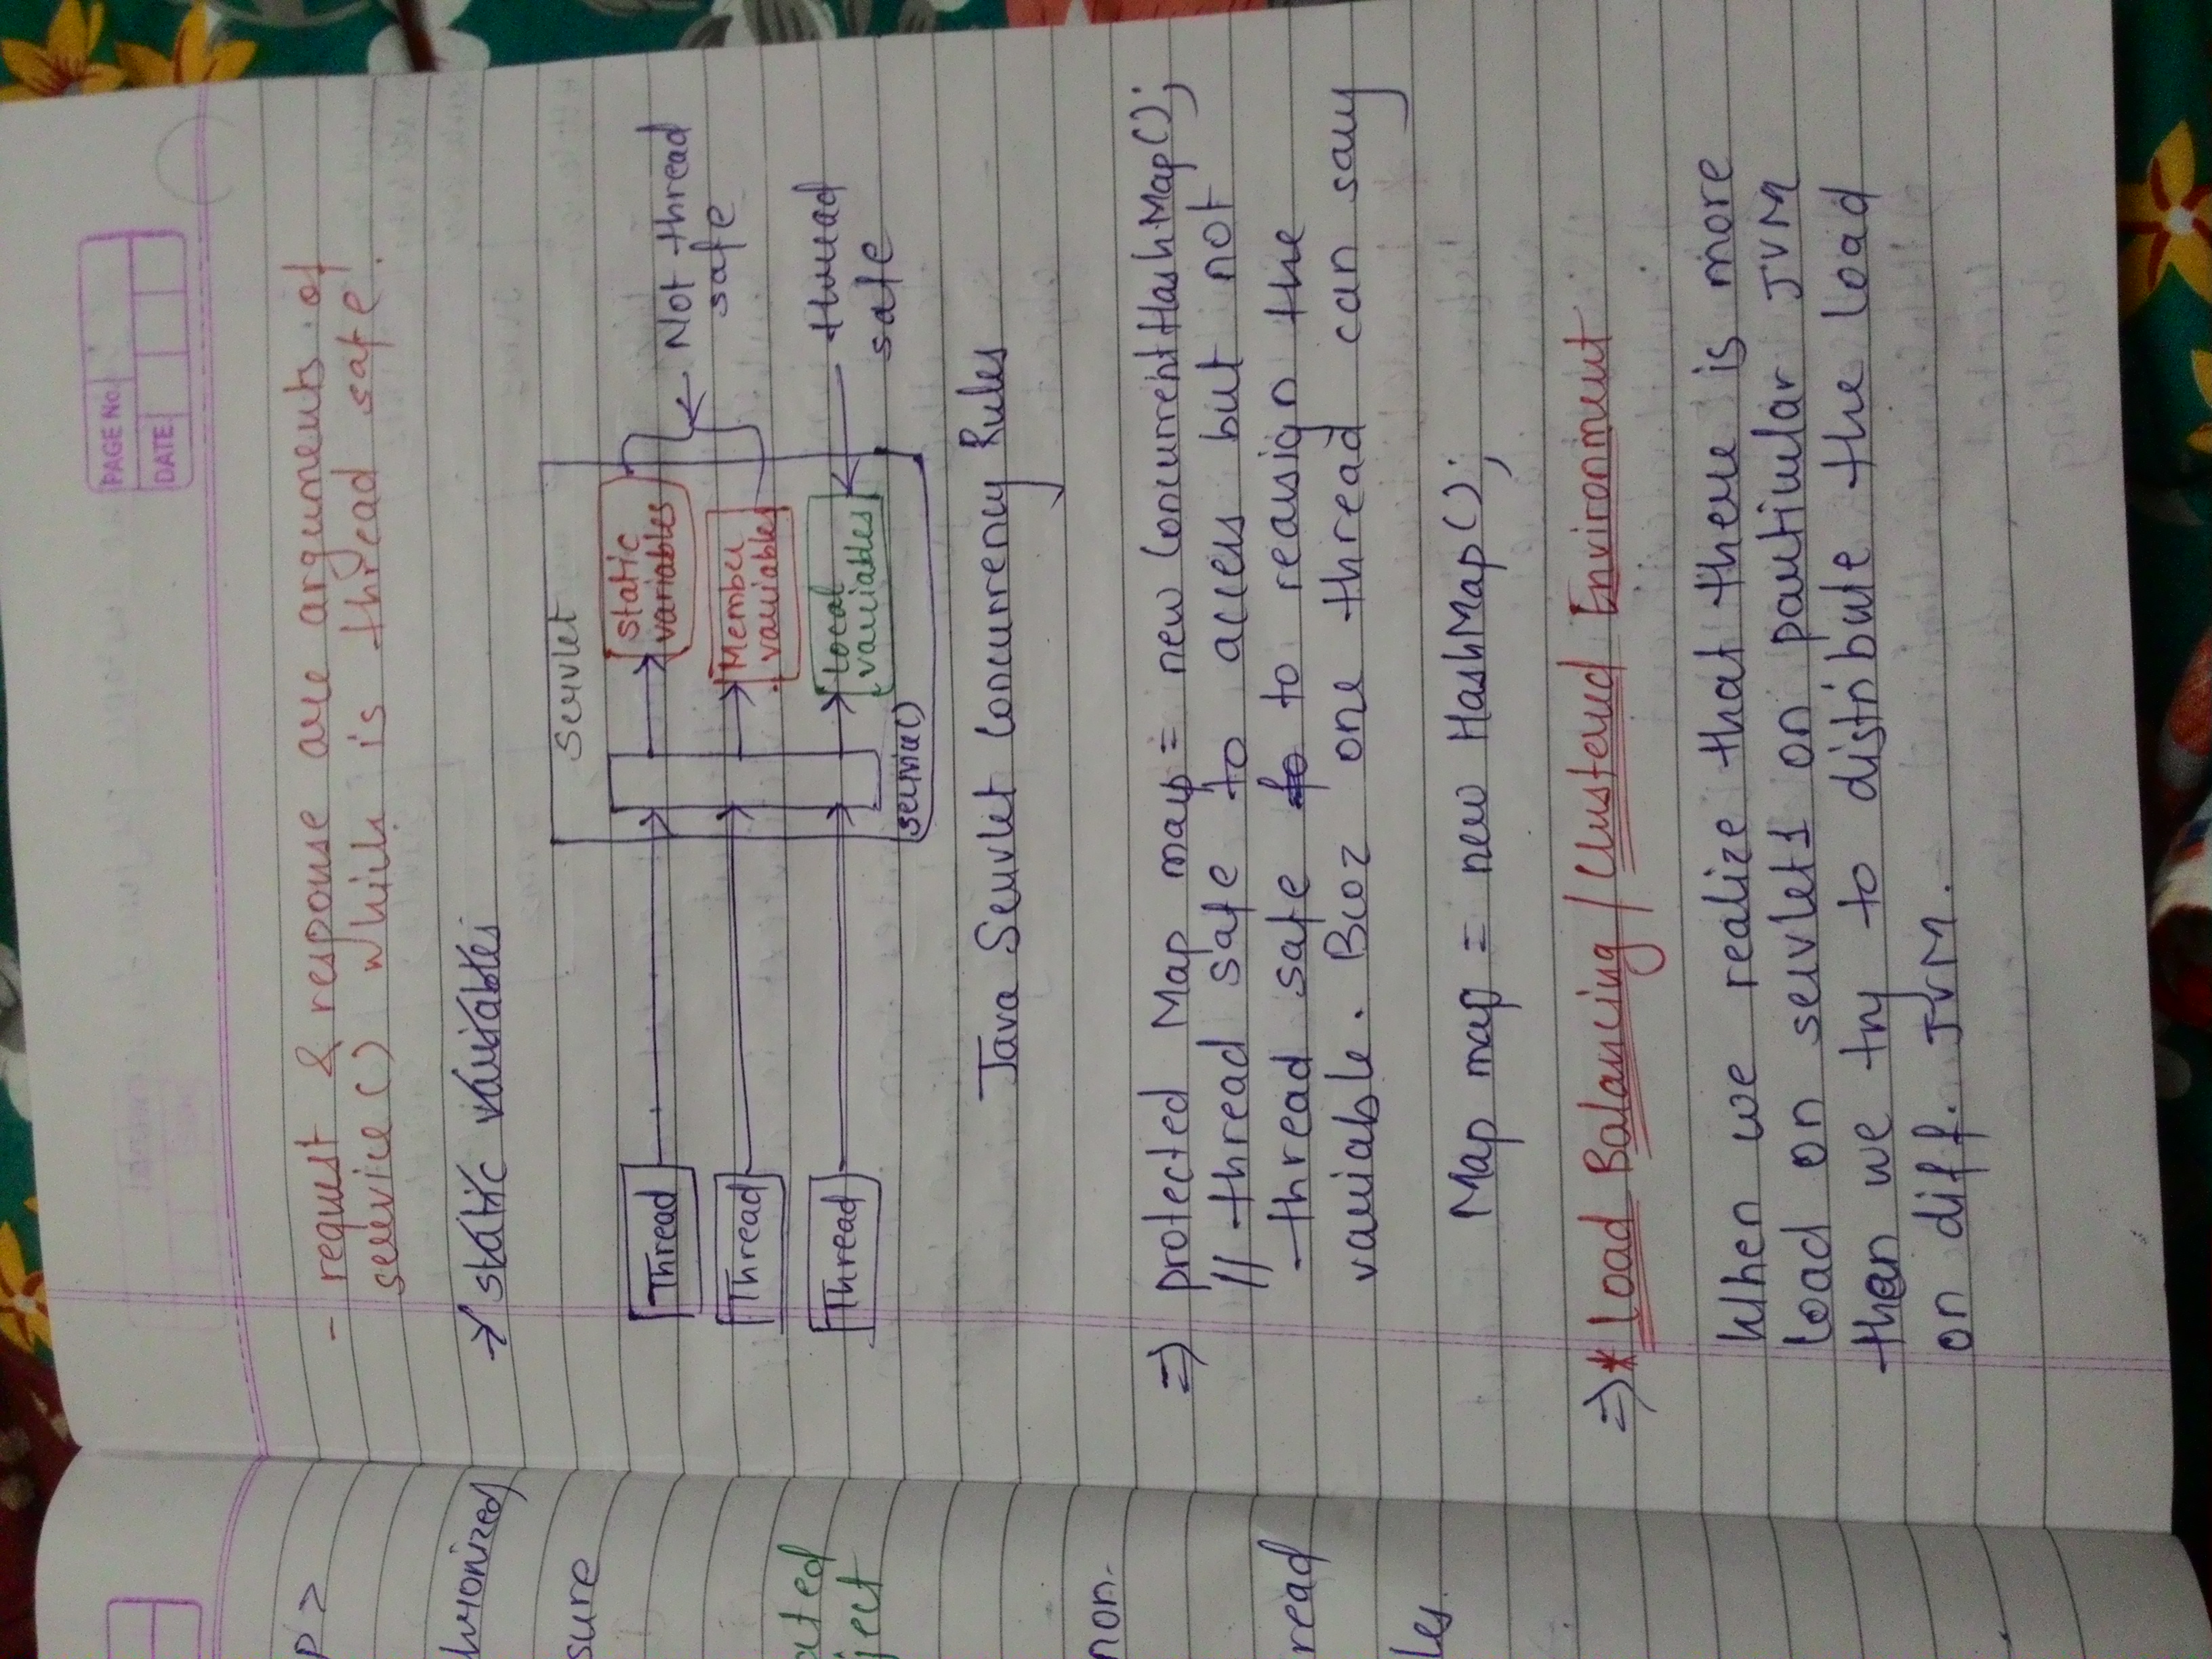 PAGE No.
DATE
p >
hronized
sure
ated
ject
non-
read
les.
- request & response are arguments of
service() which is thread safe.
→ static variables
Servlet
Thread
static
variables
Not thread
safe
Thread
Member
variables
Thread
local
variables
thread
safe
service()
Java Servlet Concurrency Rules
⇒ protected Map map = new ConcurrentHashMap();
// thread safe to access but not
thread safe to to reassign the
variable. Bcoz one thread can say
Map map = new HashMap();
⇒ * Load Balancing / Clustered Environment
When we realize that there is more
load on servlet1 on particular JVM
then we try to distribute the load
on diff. JVM.